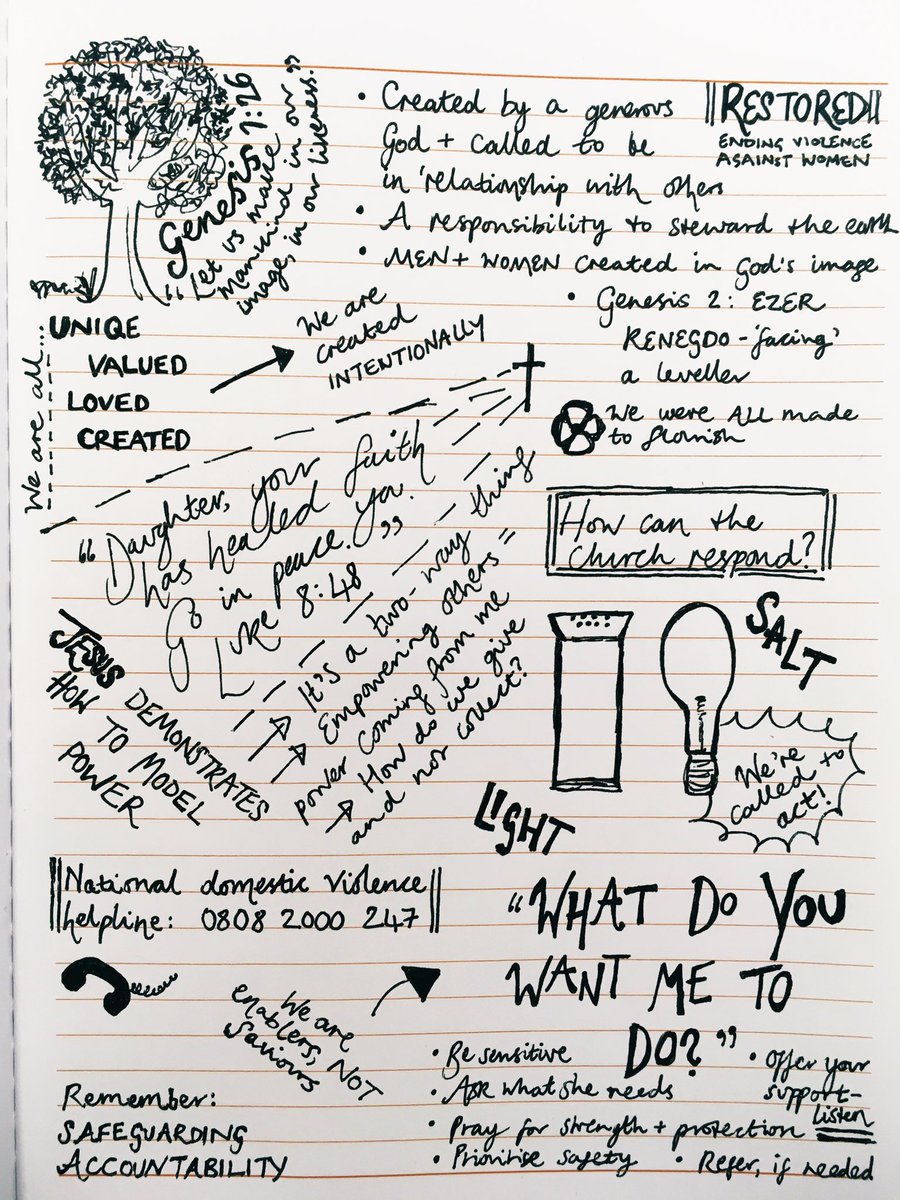 Genesis 1:26
“Let us make
mankind in our
image, in our likeness.”
• Created by a generous
God + called to be
in relationship with others
• A responsibility to steward the earth
• MEN + WOMEN created in God's image
• Genesis 2: EZER
KENEGDO - 'facing'
a leveller
||RESTORED||
ENDING VIOLENCE
AGAINST WOMEN
We are all...
UNIQE
VALUED
LOVED
CREATED
We are
created
INTENTIONALLY
We were ALL made
to flourish
“Daughter, your faith
has healed you.
Go in peace.”
Luke 8:48
How can the
Church respond?
JESUS DEMONSTRATES
HOW TO MODEL
POWER
→ It's a two-way thing
→ Empowering others =
power coming from me
→ How do we give
and not collect?
SALT
LIGHT
We're
called to
act!
National domestic violence
helpline: 0808 2000 247
“WHAT DO YOU
WANT ME TO
DO?”
We are
enablers, NOT
Saviours
• Be sensitive
• Ask what she needs
• Pray for strength + protection
• Prioritise safety
• Offer your
support -
listen
• Refer, if needed
Remember:
SAFEGUARDING
ACCOUNTABILITY